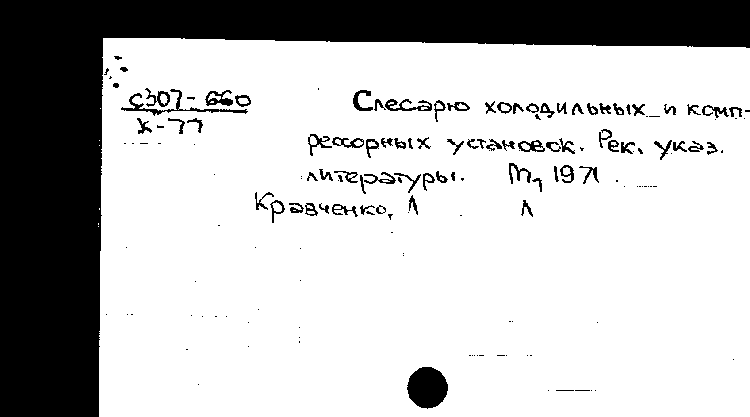 с307-660
К-77
Слесарю холодильных и комп-
рессорных установок. Рек. указ.
литературы. М., 1971.
Кравченко, Л Л